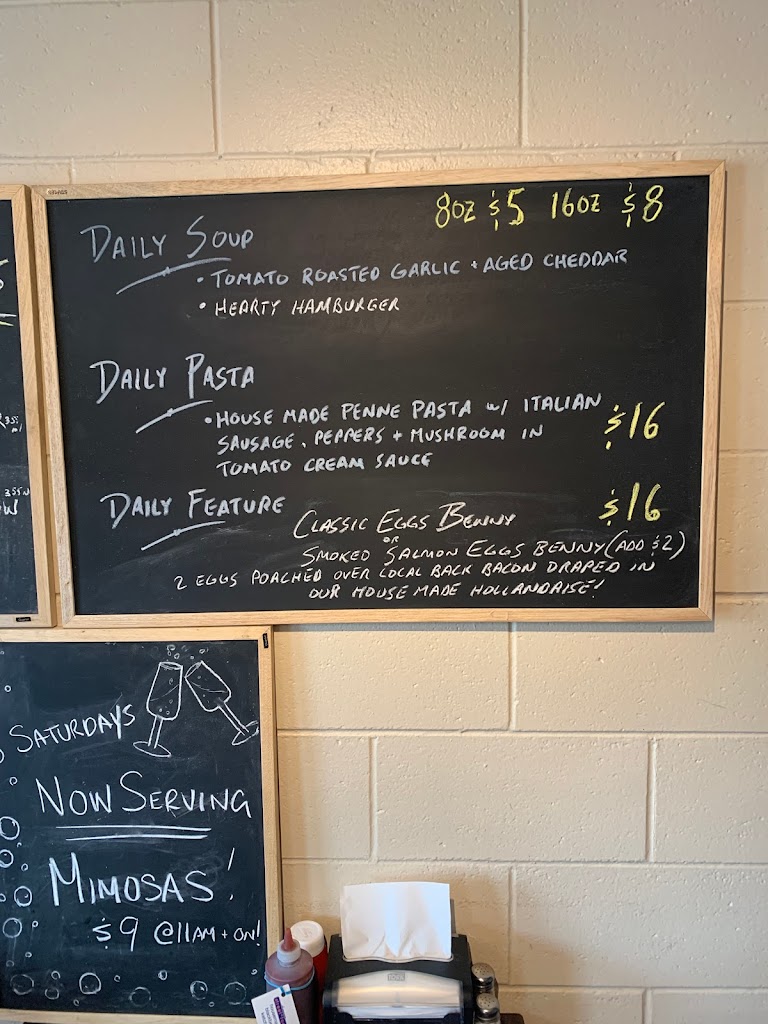 8oz $5 16oz $8
DAILY SOUP
• TOMATO ROASTED GARLIC + AGED CHEDDAR
• HEARTY HAMBURGER
DAILY PASTA
• HOUSE MADE PENNE PASTA w/ ITALIAN
SAUSAGE, PEPPERS + MUSHROOM IN
TOMATO CREAM SAUCE
$16
DAILY FEATURE
$16
CLASSIC EGGS BENNY
OR
SMOKED SALMON EGGS BENNY (ADD $2)
2 EGGS POACHED OVER LOCAL BACK BACON DRAPED IN
OUR HOUSE MADE HOLLANDAISE!
SATURDAYS
NOW SERVING
MIMOSAS!
$9 @11AM + ON!